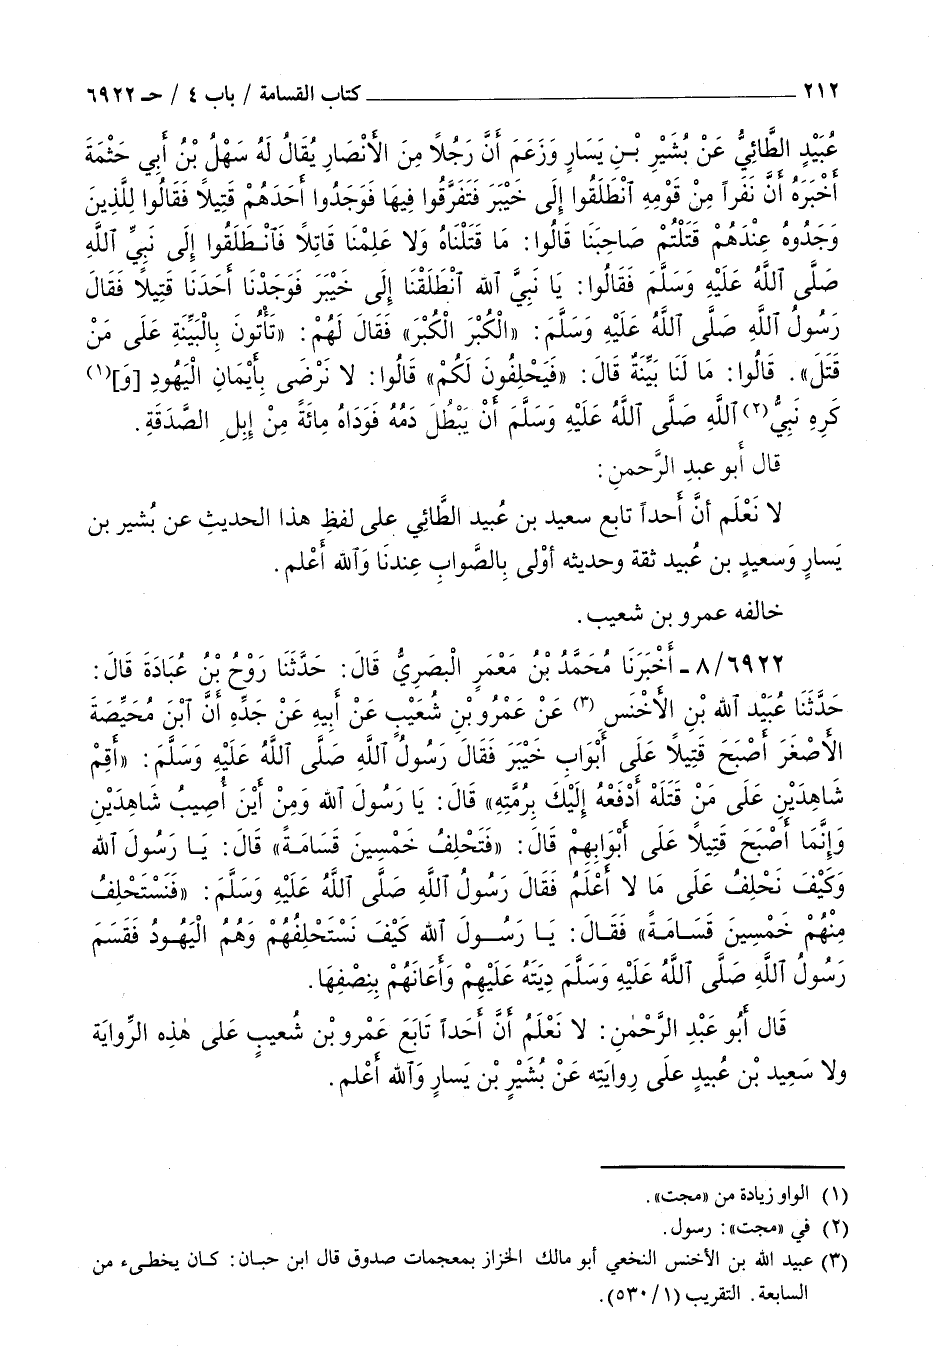 ٢١٢ ــــــــــــــــــــ كتاب القسامة / باب ٤ / حـ ٦٩٢٢
عُبَيْدٍ الطَّائِيُّ عَنْ بُشَيْرِ بْـنِ يَسَارٍ وَزَعَمَ أَنَّ رَجُلًا مِنَ الأَنْصَارِ يُقَالُ لَهُ سَهْلُ بْنُ أَبِي حَثْمَةَ
أَخْبَرَهُ أَنَّ نَفَراً مِنْ قَوْمِهِ ٱنْطَلَقُوا إِلَى خَيْبَرَ فَتَفَرَّقُوا فِيهَا فَوَجَدُوا أَحَدَهُمْ قَتِيلًا فَقَالُوا لِلَّذِينَ
وَجَدُوهُ عِنْدَهُمْ قَتَلْتُمْ صَاحِبَنَا قَالُوا: مَا قَتَلْنَاهُ وَلا عَلِمْنَا قَاتِلًا فَٱنْـطَلَقُوا إِلَى نَبِيِّ ٱللَّهِ
صَلَّى ٱللَّهُ عَلَيْهِ وَسَلَّمَ فَقَالُوا: يَا نَبِيَّ ٱلله ٱنْطَلَقْنَا إِلَى خَيْبَرَ فَوَجَدْنَا أَحَدَنَا قَتِيلًا فَقَالَ
رَسُولُ ٱللَّهِ صَلَّى ٱللَّهُ عَلَيْهِ وَسَلَّمَ: «الْكُبْرَ الْكُبْرَ» فَقَالَ لَهُمْ: «تَأْتُونَ بِالْبَيِّنَةِ عَلَى مَنْ
قَتَلَ». قَالُوا: مَا لَنَا بَيِّنَةٌ قَالَ: «فَيَحْلِفُونَ لَكُمْ» قَالُوا: لا نَرْضَى بِأَيْمَانِ الْيَهُودِ [وَ](١)
كَرِهَ نَبِيُّ(٢) ٱللَّهِ صَلَّى ٱللَّهُ عَلَيْهِ وَسَلَّمَ أَنْ يَبْطُلَ دَمُهُ فَوَدَاهُ مِائَةً مِنْ إِبِلِ الصَّدَقَةِ.
قال أبو عبدِ الرَّحمنِ:
لا نَعْلَم أنَّ أحداً تابع سعيد بن عُبيد الطَّائِي على لفظِ هذا الحديثِ عن بُشير بن
يَسارٍ وَسعيدِ بن عُبيد ثقة وحديثه أوْلى بِالصَّوابِ عِندنَا وَٱلله أَعْلم.
خالفه عمرو بن شعيب.
٨/٦٩٢٢ ـ أَخْبَرَنَا مُحَمَّدُ بْنُ مَعْمَرٍ الْبَصَرِيُّ قَالَ: حَدَّثَنَا رَوْحُ بْنُ عُبَادَةَ قَالَ:
حَدَّثَنَا عُبَيْدُ ٱلله بْنِ الأَخْنَسِ (٣) عَنْ عَمْرِو بْنِ شُعَيْبٍ عَنْ أَبِيهِ عَنْ جَدِّهِ أَنَّ ٱبْنَ مُحَيِّصَةَ
الأَصْغَرَ أَصْبَحَ قَتِيلًا عَلَى أَبْوَابِ خَيْبَرَ فَقَالَ رَسُولُ ٱللَّهِ صَلَّى ٱللَّهُ عَلَيْهِ وَسَلَّمَ: «أَقِمْ
شَاهِدَيْنِ عَلَى مَنْ قَتَلَهُ أَدْفَعْهُ إِلَيْكَ بِرُمَّتِهِ» قَالَ: يَا رَسُولَ ٱلله وَمِنْ أَيْنَ أُصِيبُ شَاهِدَيْنِ
وَإِنَّمَا أَصْبَحَ قَتِيلًا عَلَى أَبْوَابِهِمْ قَالَ: «فَتَحْلِفُ خَمْسِينَ قَسَامَـةً» قَالَ: يَـا رَسُولَ ٱلله
وَكَيْفَ نَحْلِفُ عَلَى مَا لا أَعْلَمُ فَقَالَ رَسُولُ ٱللَّهِ صَلَّى ٱللَّهُ عَلَيْهِ وَسَلَّمَ: «فَنَسْتَحْلِفُ
مِنْهُمْ خَمْسِينَ قَسَـامَـةً» فَقَـالَ: يَـا رَسُـولَ ٱلله كَيْفَ نَسْتَحْلِفُهُمْ وَهُمُ الْيَهُـودُ فَقَسَمَ
رَسُولُ ٱللَّهِ صَلَّى ٱللَّهُ عَلَيْهِ وَسَلَّمَ دِيَتَهُ عَلَيْهِمْ وَأَعَانَهُمْ بِنِصْفِهَا.
قَال أَبُو عَبْدِ الرَّحْمٰنِ: لا نَعْلَمُ أَنَّ أَحَداً تَابَعَ عَمْرو بْن شُعيبٍ عَلى هٰذِهِ الرِّوايَة
ولا سَعِيد بْن عُبيدٍ على رِوايَتِه عَنْ بُشَيْرِ بْن يَسَارٍ وَٱلله أَعْلم.
(١) الواو زيادة من «مجت».
(٢) في «مجت»: رسول.
(٣) عبيد الله بن الأخنس النخعي أبو مالك الخزاز بمعجمات صدوق قال ابن حبان: كـان يخطىء من
السابعة. التقريب (١/ ٥٣٠).